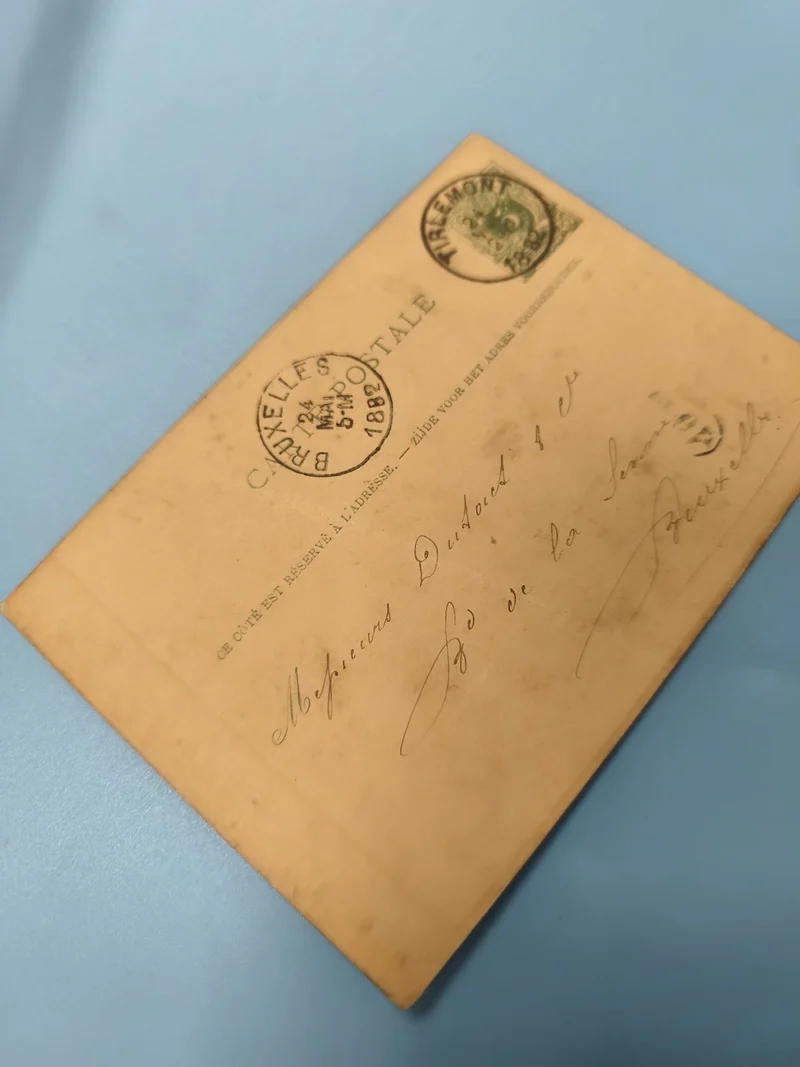 TIRLEMONT
24
5
1882
CARTE POSTALE
BRUXELLES
24
MAI
5-M
1882
CE CÔTÉ EST RÉSERVÉ À L'ADRESSE. — ZIJDE VOOR HET ADRES VOORBEHOUDEN.
Messieurs Dutoict & Cie
Bd de la Senne
Bruxelles